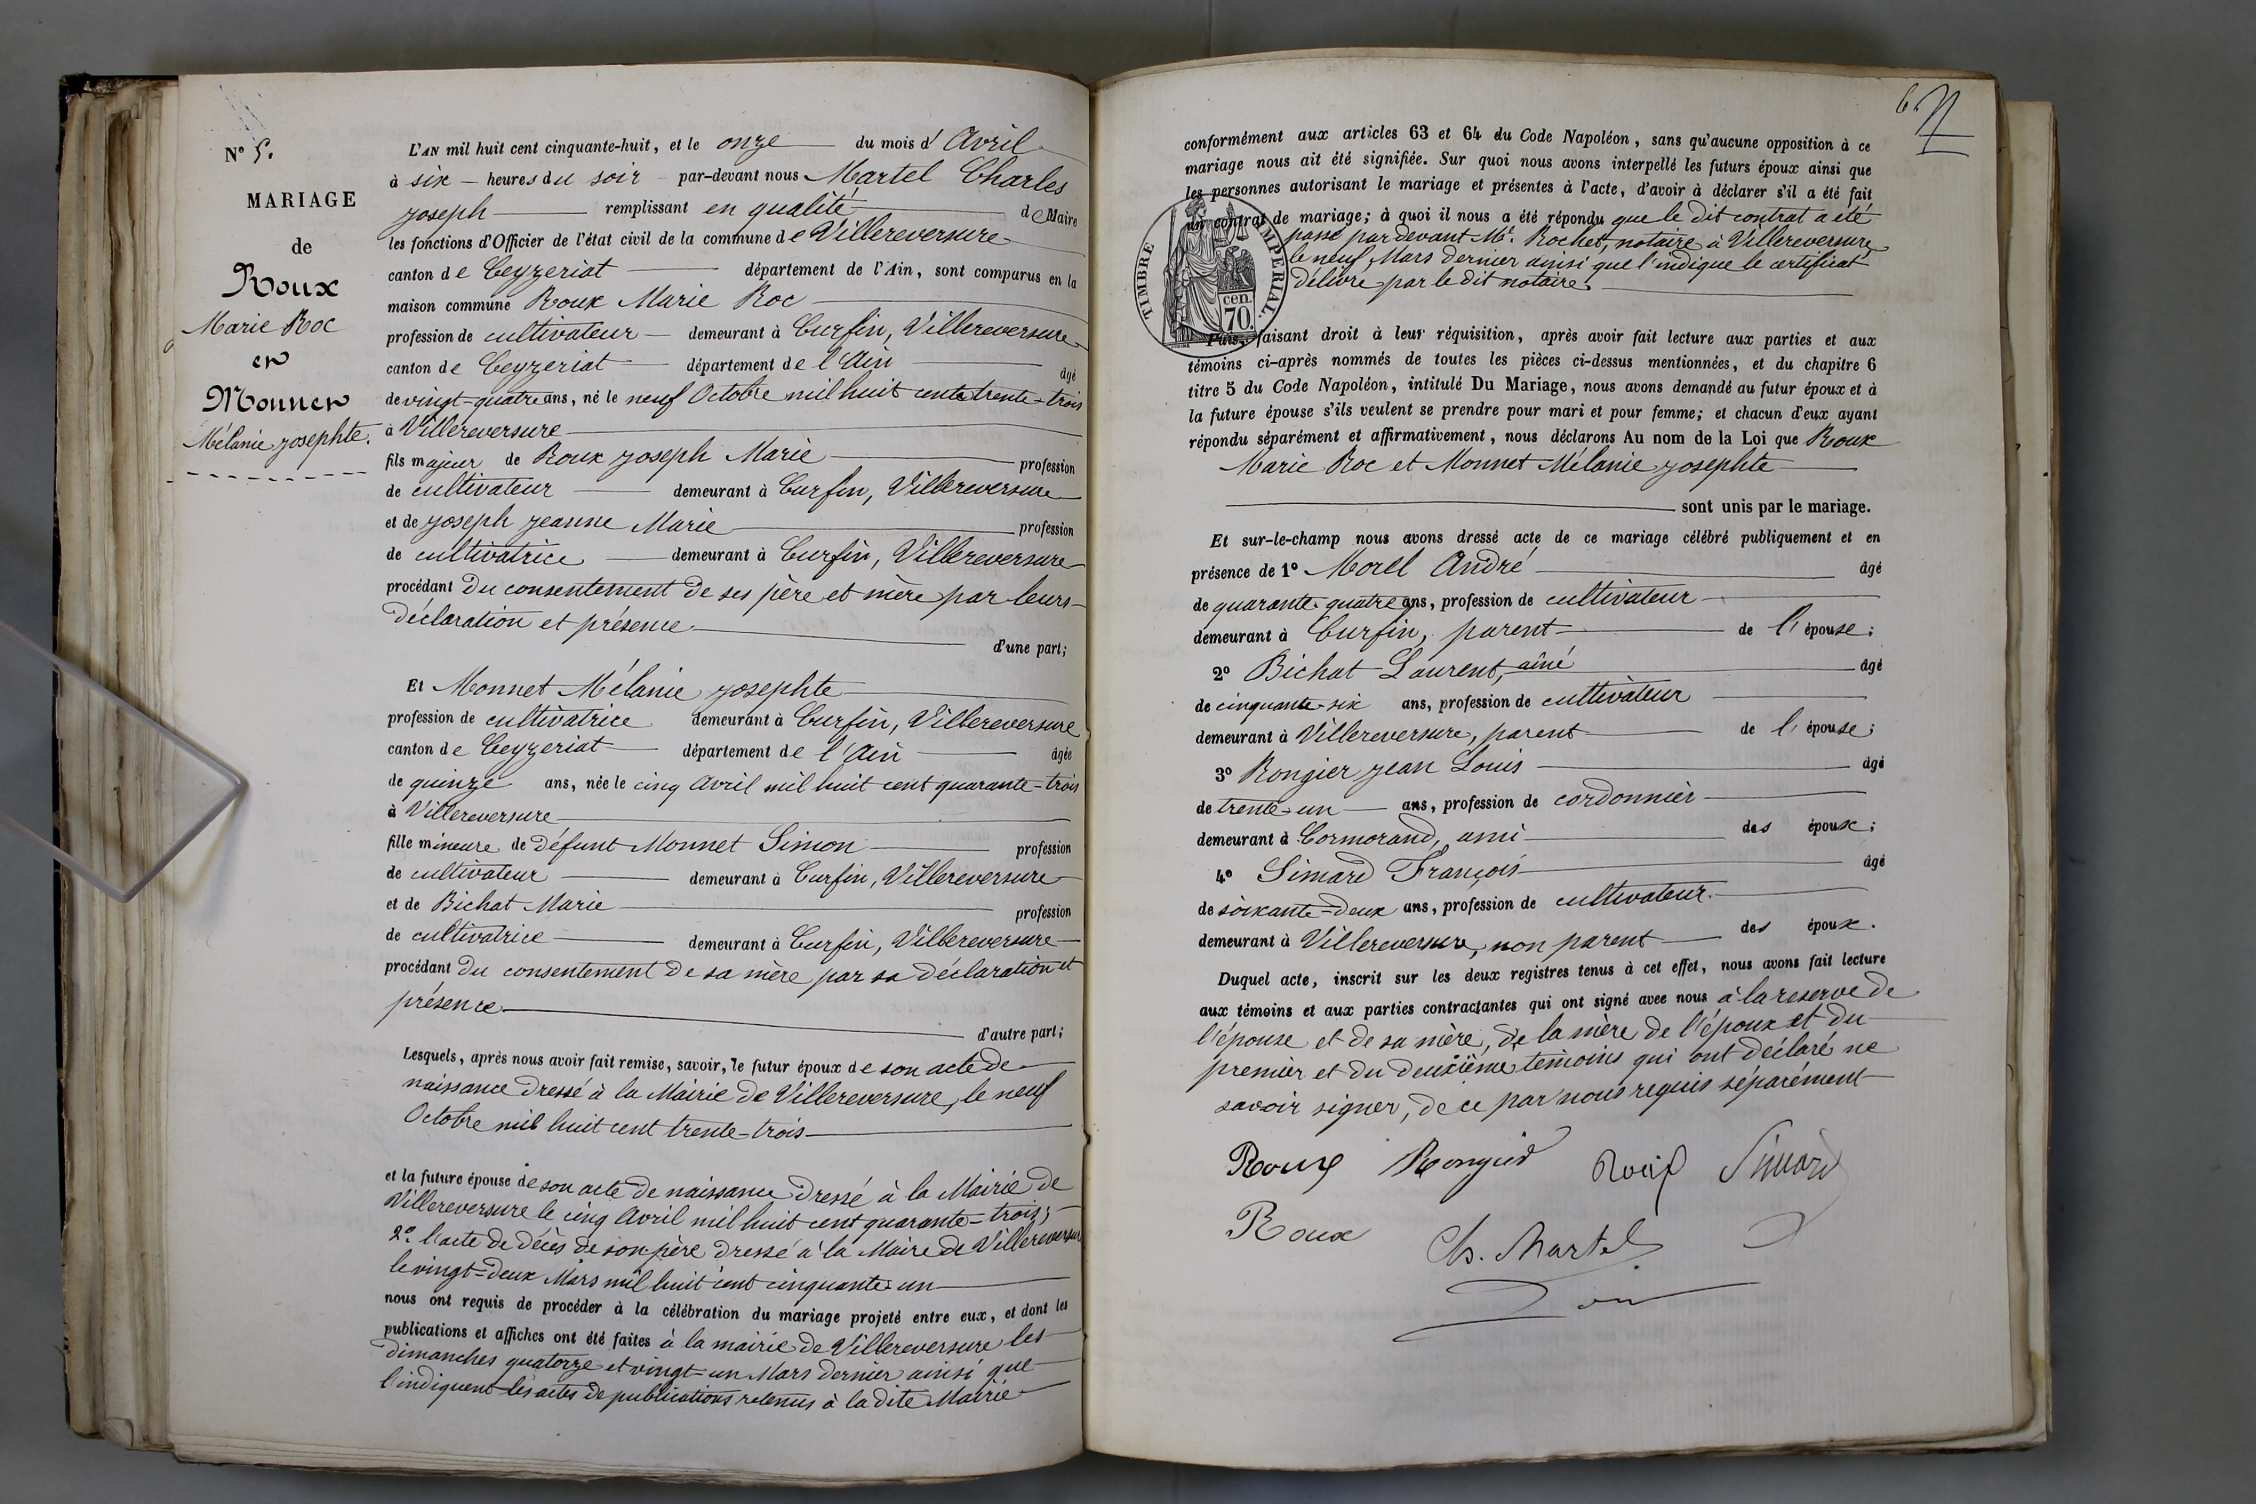 N° 5.
MARIAGE
de
Roux
Marie Roc
et
Monnet
Mélanie Josephte.
L'AN mil huit cent cinquante-huit, et le onze du mois d'Avril
à six heures du soir par-devant nous Martel Charles
Joseph remplissant en qualité de Maire
les fonctions d'Officier de l'état civil de la commune de Villereversure
canton de Ceyzeriat département de l'Ain, sont comparus en la
maison commune Roux Marie Roc
profession de cultivateur demeurant à Curfin, Villereversure
canton de Ceyzeriat département de l'Ain âgé
de vingt-quatre ans, né le neuf Octobre mil huit cent trente-trois
à Villereversure
fils majeur de Roux Joseph Marie profession
de cultivateur demeurant à Curfin, Villereversure
et de Joseph Jeanne Marie profession
de cultivatrice demeurant à Curfin, Villereversure
procédant du consentement de ses père et mère par leurs
déclaration et présence
d'une part;
Et Monnet Mélanie Josephte
profession de cultivatrice demeurant à Curfin, Villereversure
canton de Ceyzeriat département de l'Ain âgée
de quinze ans, née le cinq Avril mil huit cent quarante-trois
à Villereversure
fille mineure de défunt Monnet Simon profession
de cultivateur demeurant à Curfin, Villereversure
et de Bichat Marie profession
de cultivatrice demeurant à Curfin, Villereversure
procédant du consentement de sa mère par sa déclaration et
présence
d'autre part;
Lesquels, après nous avoir fait remise, savoir, le futur époux de son acte de
naissance dressé à la Mairie de Villereversure, le neuf
Octobre mil huit cent trente-trois
et la future épouse de son acte de naissance dressé à la Mairie de
Villereversure le cinq Avril mil huit cent quarante-trois;
2° l'acte de décès de son père dressé à la Maire de Villereversure
le vingt-deux Mars mil huit cent cinquante-un
nous ont requis de procéder à la célébration du mariage projeté entre eux, et dont les
publications et affiches ont été faites à la mairie de Villereversure les
dimanches quatorze et vingt-un Mars dernier ainsi que
l'indiquent les actes de publications retenus à la dite Mairie
6
conformément aux articles 63 et 64 du Code Napoléon, sans qu'aucune opposition à ce
mariage nous ait été signifiée. Sur quoi nous avons interpellé les futurs époux ainsi que
les personnes autorisant le mariage et présentes à l'acte, d'avoir à déclarer s'il a été fait
un contrat de mariage; à quoi il nous a été répondu que le dit contrat a été
passé par devant Me. Rochet, notaire à Villereversure
le neuf Mars dernier ainsi que l'indique le certificat
délivré par le dit notaire.
TIMBRE IMPÉRIAL.
cen.
70.
Puis, faisant droit à leur réquisition, après avoir fait lecture aux parties et aux
témoins ci-après nommés de toutes les pièces ci-dessus mentionnées, et du chapitre 6
titre 5 du Code Napoléon, intitulé Du Mariage, nous avons demandé au futur époux et à
la future épouse s'ils veulent se prendre pour mari et pour femme; et chacun d'eux ayant
répondu séparément et affirmativement, nous déclarons Au nom de la Loi que Roux
Marie Roc et Monnet Mélanie Josephte
sont unis par le mariage.
Et sur-le-champ nous avons dressé acte de ce mariage célébré publiquement et en
présence de 1° Morel André âgé
de quarante-quatre ans, profession de cultivateur
demeurant à Curfin, parent de l'épouse;
2° Bichat Laurent, aîné âgé
de cinquante-six ans, profession de cultivateur
demeurant à Villereversure, parent de l'épouse;
3° Rongier Jean Louis âgé
de trente-un ans, profession de cordonnier
demeurant à Cormorand, ami des époux;
4° Simard François âgé
de soixante-deux ans, profession de cultivateur.
demeurant à Villereversure, non parent des époux.
Duquel acte, inscrit sur les deux registres tenus à cet effet, nous avons fait lecture
aux témoins et aux parties contractantes qui ont signé avec nous à la reserve de
l'épouse et de sa mère, de la mère de l'époux et du
premier et du deuxième témoins qui ont déclaré ne
savoir signer, de ce par nous requis séparément
Roux Rongier Simard
Roux Ch. Martel